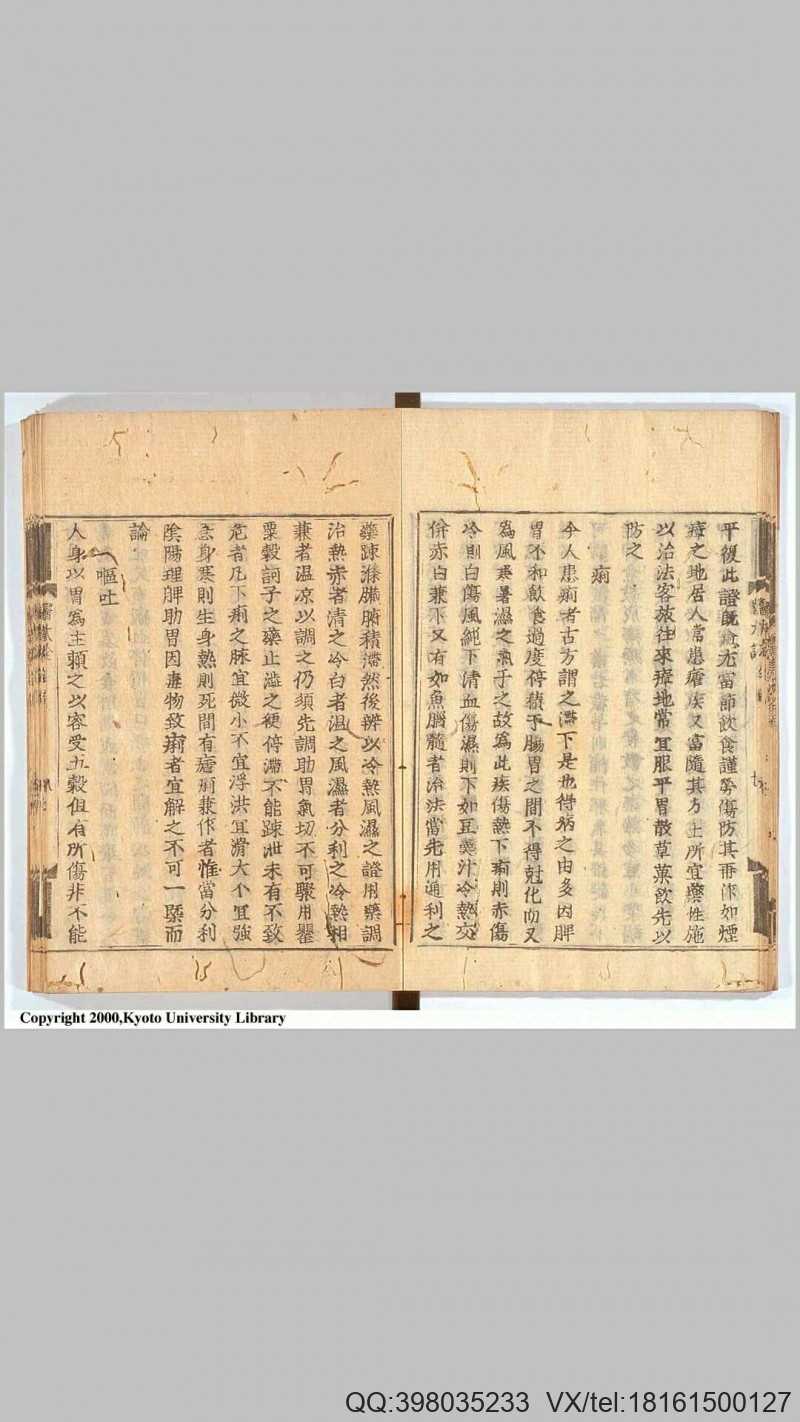 平復此證既愈尤當節飲食謹勞傷防其再作如煙
瘴之地居人常患瘧疾又當隨其方土所宜藥性施
以治法客旅往來瘴地常宜服平胃散草菓飲先以
防之
痢
今人患痢者古方謂之滯下是也得病之由多因脾
胃不和飲食過度停積于腸胃之間不得尅化而又
為風寒暑濕之氣干之故為此疾傷熱下痢則赤傷
冷則白傷風純下清血傷濕則下如豆羹汁冷熱交
併赤白兼下又有如魚腦髓者治法當先用通利之
藥踈滌臓腑積滯然後辨以冷熱風濕之證用藥調
治熱赤者清之冷白者温之風濕者分利之冷熱相
兼者温凉以調之仍須先調助胃氣切不可驟用罌
粟殼訶子之藥止澁之使停滯不能踈泄未有不致
危者凡下痢之脉宜微小不宜浮洪宜滑大不宜弦
急身寒則生身熱則死間有瘧痢兼作者惟當分利
陰陽理脾助胃因毒物致痢者宜解之不可一槩而
論
嘔吐
人身以胃為主賴之以容受五穀但有所傷非不能
Copyright 2000,Kyoto University Library
QQ:398035233 VX/tel:18161500127